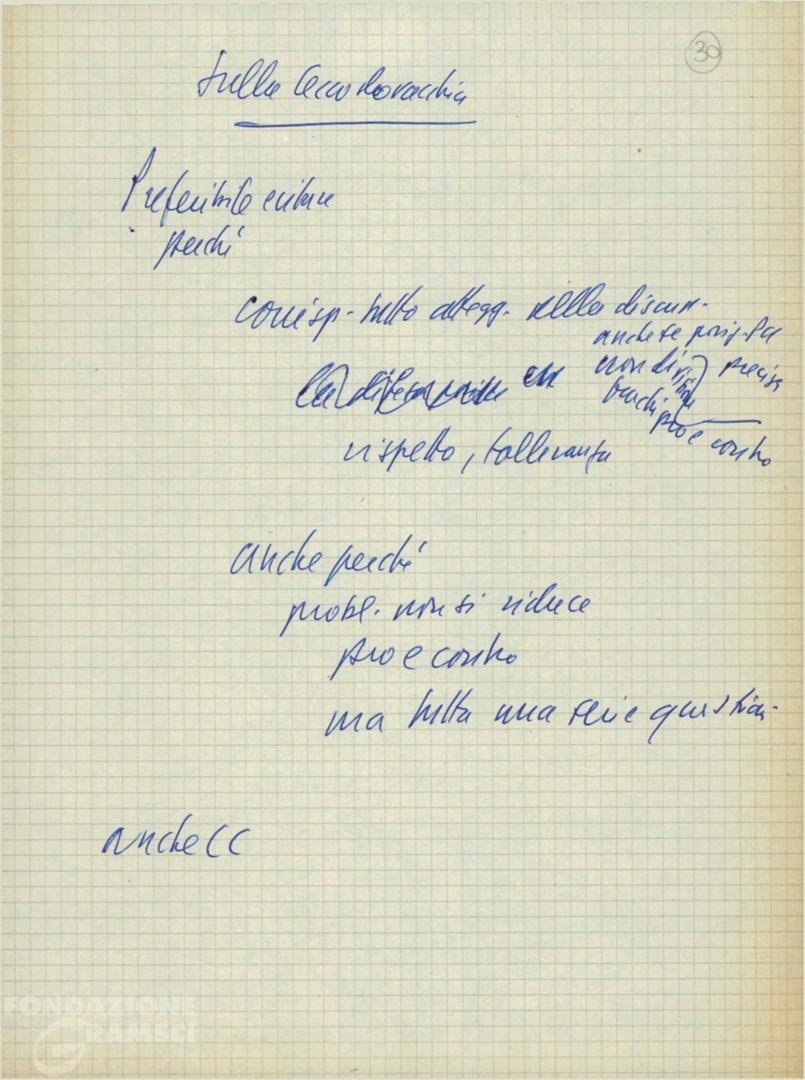 30
Sulla Cecoslovacchia
Preferibile evitare
perché
corrisp. tutto attegg. nella discuss.
anche se posiz.
non di precisa
pro e contro
rispetto, tolleranza
anche perché
probl. non si riduce
pro e contro
ma tutta una serie question.
anche CC
FONDAZIONE
GRAMSCI